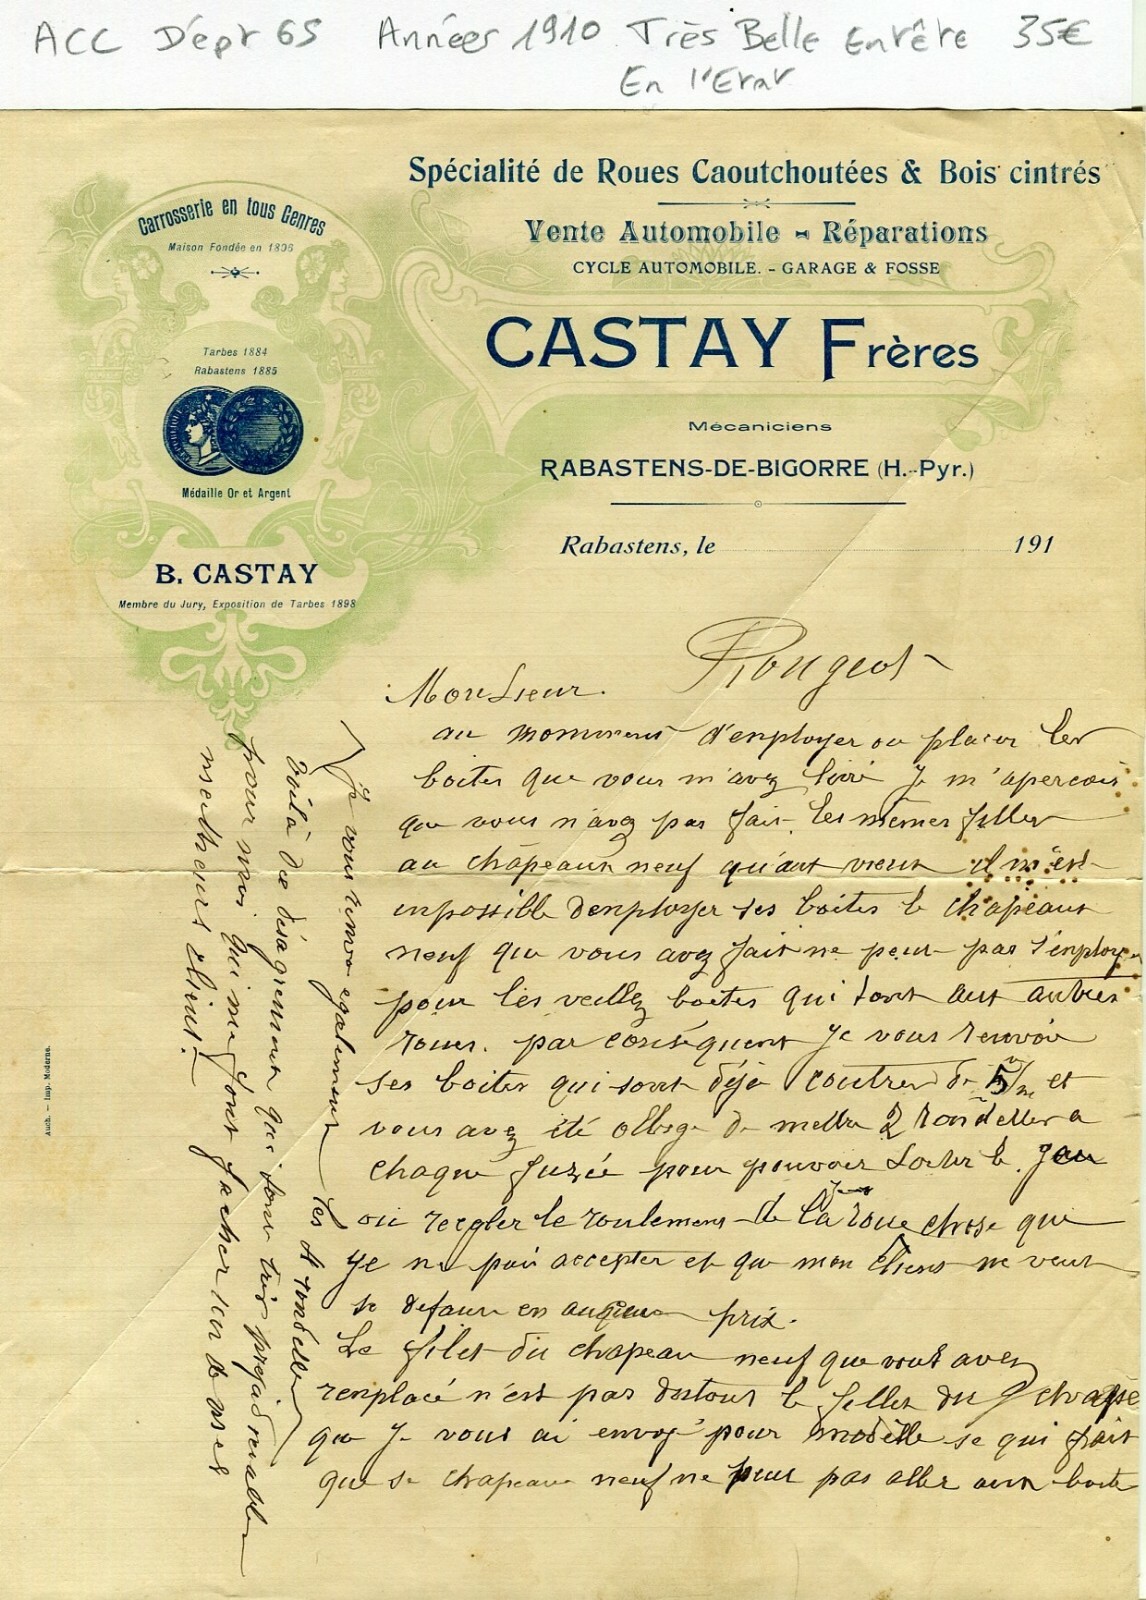 ACC Dépt 65 Années 1910 Très Belle Entête 35€
En l'Etat
Spécialité de Roues Caoutchoutées & Bois cintrés
Vente Automobile - Réparations
CYCLE AUTOMOBILE. - GARAGE & FOSSE
CASTAY Frères
Mécaniciens
RABASTENS-DE-BIGORRE (H.-Pyr.)
Rabastens, le 191
Carrosserie en tous Genres
Maison Fondée en 1896
Tarbes 1884
Rabastens 1885
Médaille Or et Argent
B. CASTAY
Membre du Jury, Exposition de Tarbes 1898
Rougeot
Monsieur.
au moment d'employer ou placer les
boites que vous m'avez livré je m'apercois
que vous n'avez pas fait les mêmes filles
au chapeaux neuf qu'aut vieux il m'est
impossible d'employer ses boites le chapeaux
neuf que vous avez fait ne peut pas l'employer
pour les veillez boites qui sont aux autres
roues. par conséquent je vous renvoie
ses boites qui sont déjà coutres de 5 m/m et
vous avez été oblege de mettre 2 rondelles a
chaque fuzée pour pouvoir le jeu
ou reegler le roulement de la roue chose que
je ne puis accepter et que mon client ne veut
se defaire en aucun prix.
Le filet du chapeau neuf que vous avez
remplacé n'est pas du tout le filles du chapeau
que je vous ai envoyé pour modèlle se qui fait
que se chapeau neuf ne peut pas aller aux boite
Je vous renvoi egalement les rondelles
voilà du désagrement qui sont très prejudiciables
pour moi qui me font facher un de mes
meilleurs client.
Auch. — Imp. Moderne.